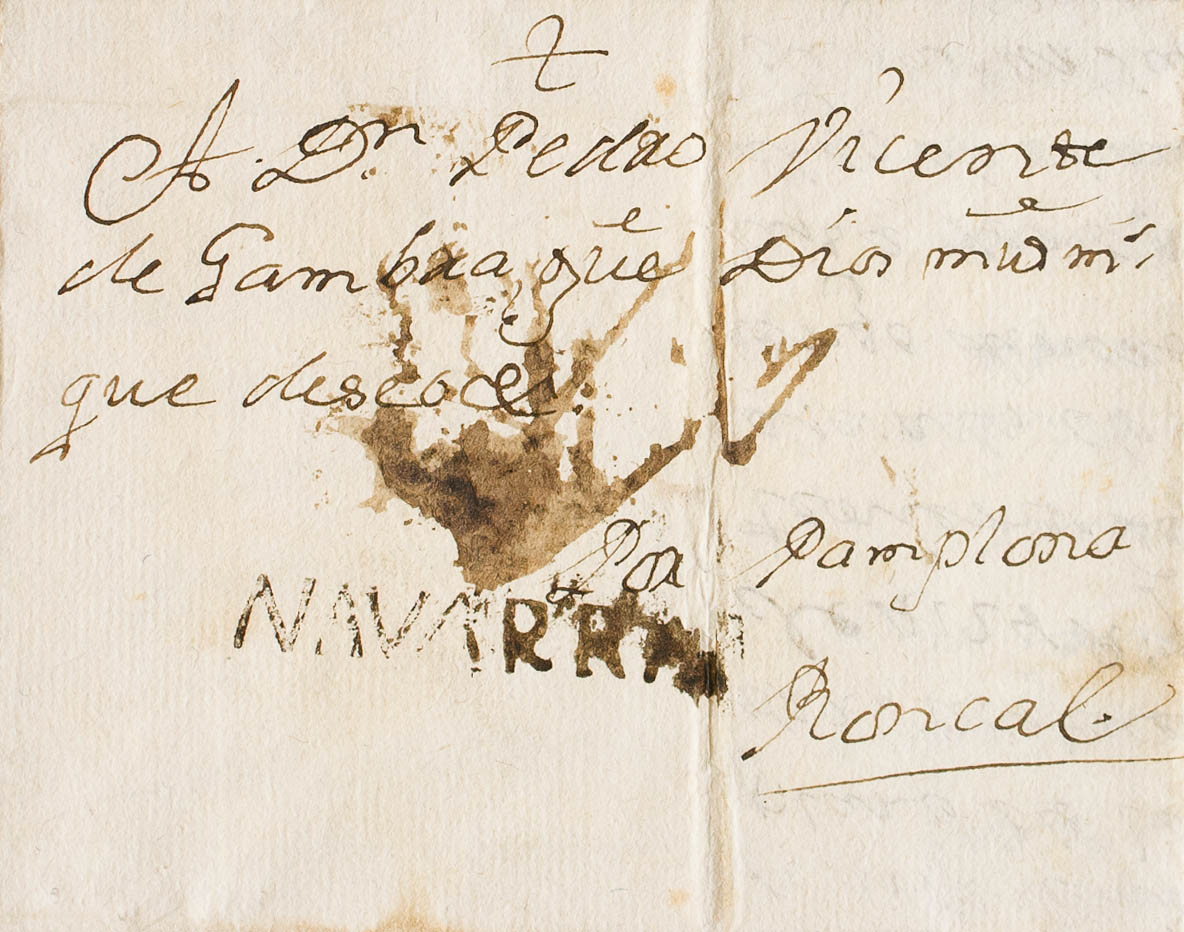 A Dn. Pedro Vicente
de Gambra, gue Dios ms as
que deseo &.
Por Pamplona
NAVARRA
Roncal